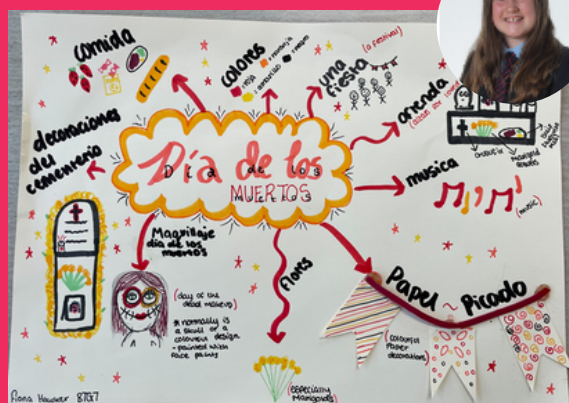 comida
colores
roja
naranja
amarillo
negro
una
fiesta
(a festival)
ofrenda
decoraciones
del
cementerio
Día de los
MUERTOS
musica
(music)
Maquillaje
día de los
muertos
(day of the
dead makeup)
normally is
a skull or a
colourful design
- painted with
face paints
flores
(especially
Marigolds)
Papel Picado
(colourful
Paper
decorations)